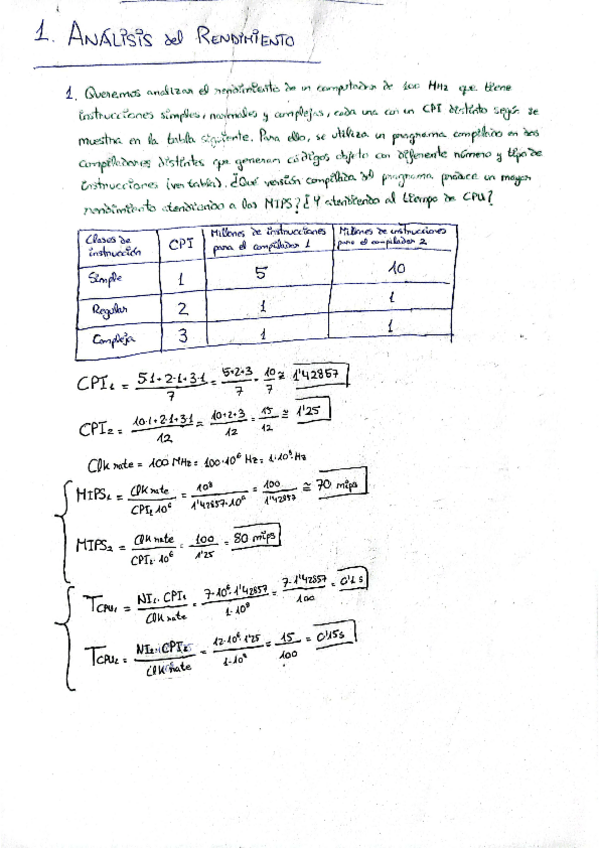 1. ANÁLISIS del RENDIMIENTO
1. Queremos analizar el rendimiento de un computador de 100 MHz que tiene
instrucciones simples, normales y complejas, cada una con un CPI distinto según se
muestra en la tabla siguiente. Para ello, se utiliza un programa compilado en dos
compiladores distintos que generan códigos objeto con diferente número y tipo de
instrucciones (ver tabla). ¿Qué versión compilada del programa produce un mayor
rendimiento atendiendo a los MIPS? ¿Y atendiendo al tiempo de CPU?
Clases de instrucción | CPI | Millones de instrucciones para el compilador 1 | Millones de instrucciones para el compilador 2
Simple | 1 | 5 | 10
Regular | 2 | 1 | 1
Compleja | 3 | 1 | 1
CPI₁ = 5·1+2·1+3·1/7 = 5+2+3/7 = 10/7 ≅ 1'42857
CPI₂ = 10·1+2·1+3·1/12 = 10+2+3/12 = 15/12 ≅ 1'25
Clk rate = 100 MHz = 100·10⁶ Hz = 1·10⁸ Hz
MIPS₁ = Clk rate/CPI₁·10⁶ = 10⁸/1'42857·10⁶ = 100/1'42857 ≅ 70 mips
MIPS₂ = Clk rate/CPI₂·10⁶ = 100/1'25 = 80 mips
Tcpu₁ = NI₁·CPI₁/Clk rate = 7·10⁶·1'42857/1·10⁸ = 7·1'42857/100 = 0'1 s
Tcpu₂ = NI₂·CPI₂/Clk rate = 12·10⁶·1'25/1·10⁸ = 15/100 = 0'15s